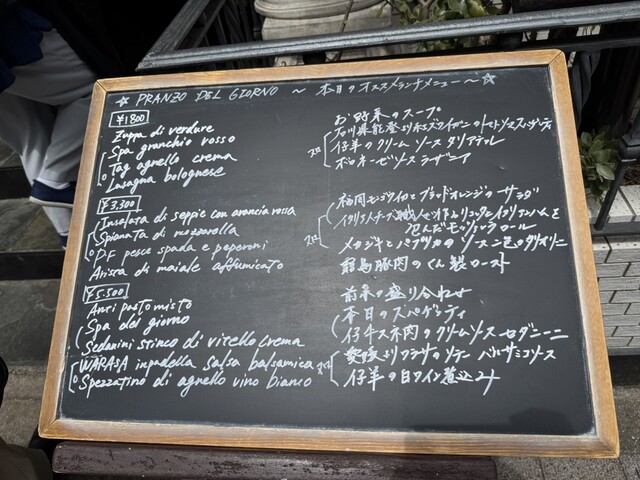 ☆ PRANZO DEL GIORNO ～ 本日のオススメランチメニュー ～☆
¥1800
Zuppa di verdure お野菜のスープ
Spa granchio rosso 石川県能登より紅ズワイガニのトマトソーススパゲティ
Tag agnello crema 仔羊のクリームソース タリアテッレ
Lasagna bolognese ボロネーゼソース ラザニア
¥3,300
Insalata di seppie con arancia rossa 福岡モンゴウイカとブラッドオレンジのサラダ
Spianata di mozzarella イタリア
包んだモッツァレラロール
D.F pesce spada e peperoni メカジキとパプリカのソース
Arista di maiale affumicato 豚肉のくん製ロースト
¥5.500
Antipasto misto 前菜の盛り合わせ
Spa del giorno 本日のスパゲッティ
Sedanini stinco di vitello crema 仔牛スネ肉のクリームソースセダニーニ
WARASA inpadella salsa balsamica 愛媛よりワラサのソテー バルサミコソース
Spezzatino di agnello vino bianco 仔羊の白ワイン煮込み